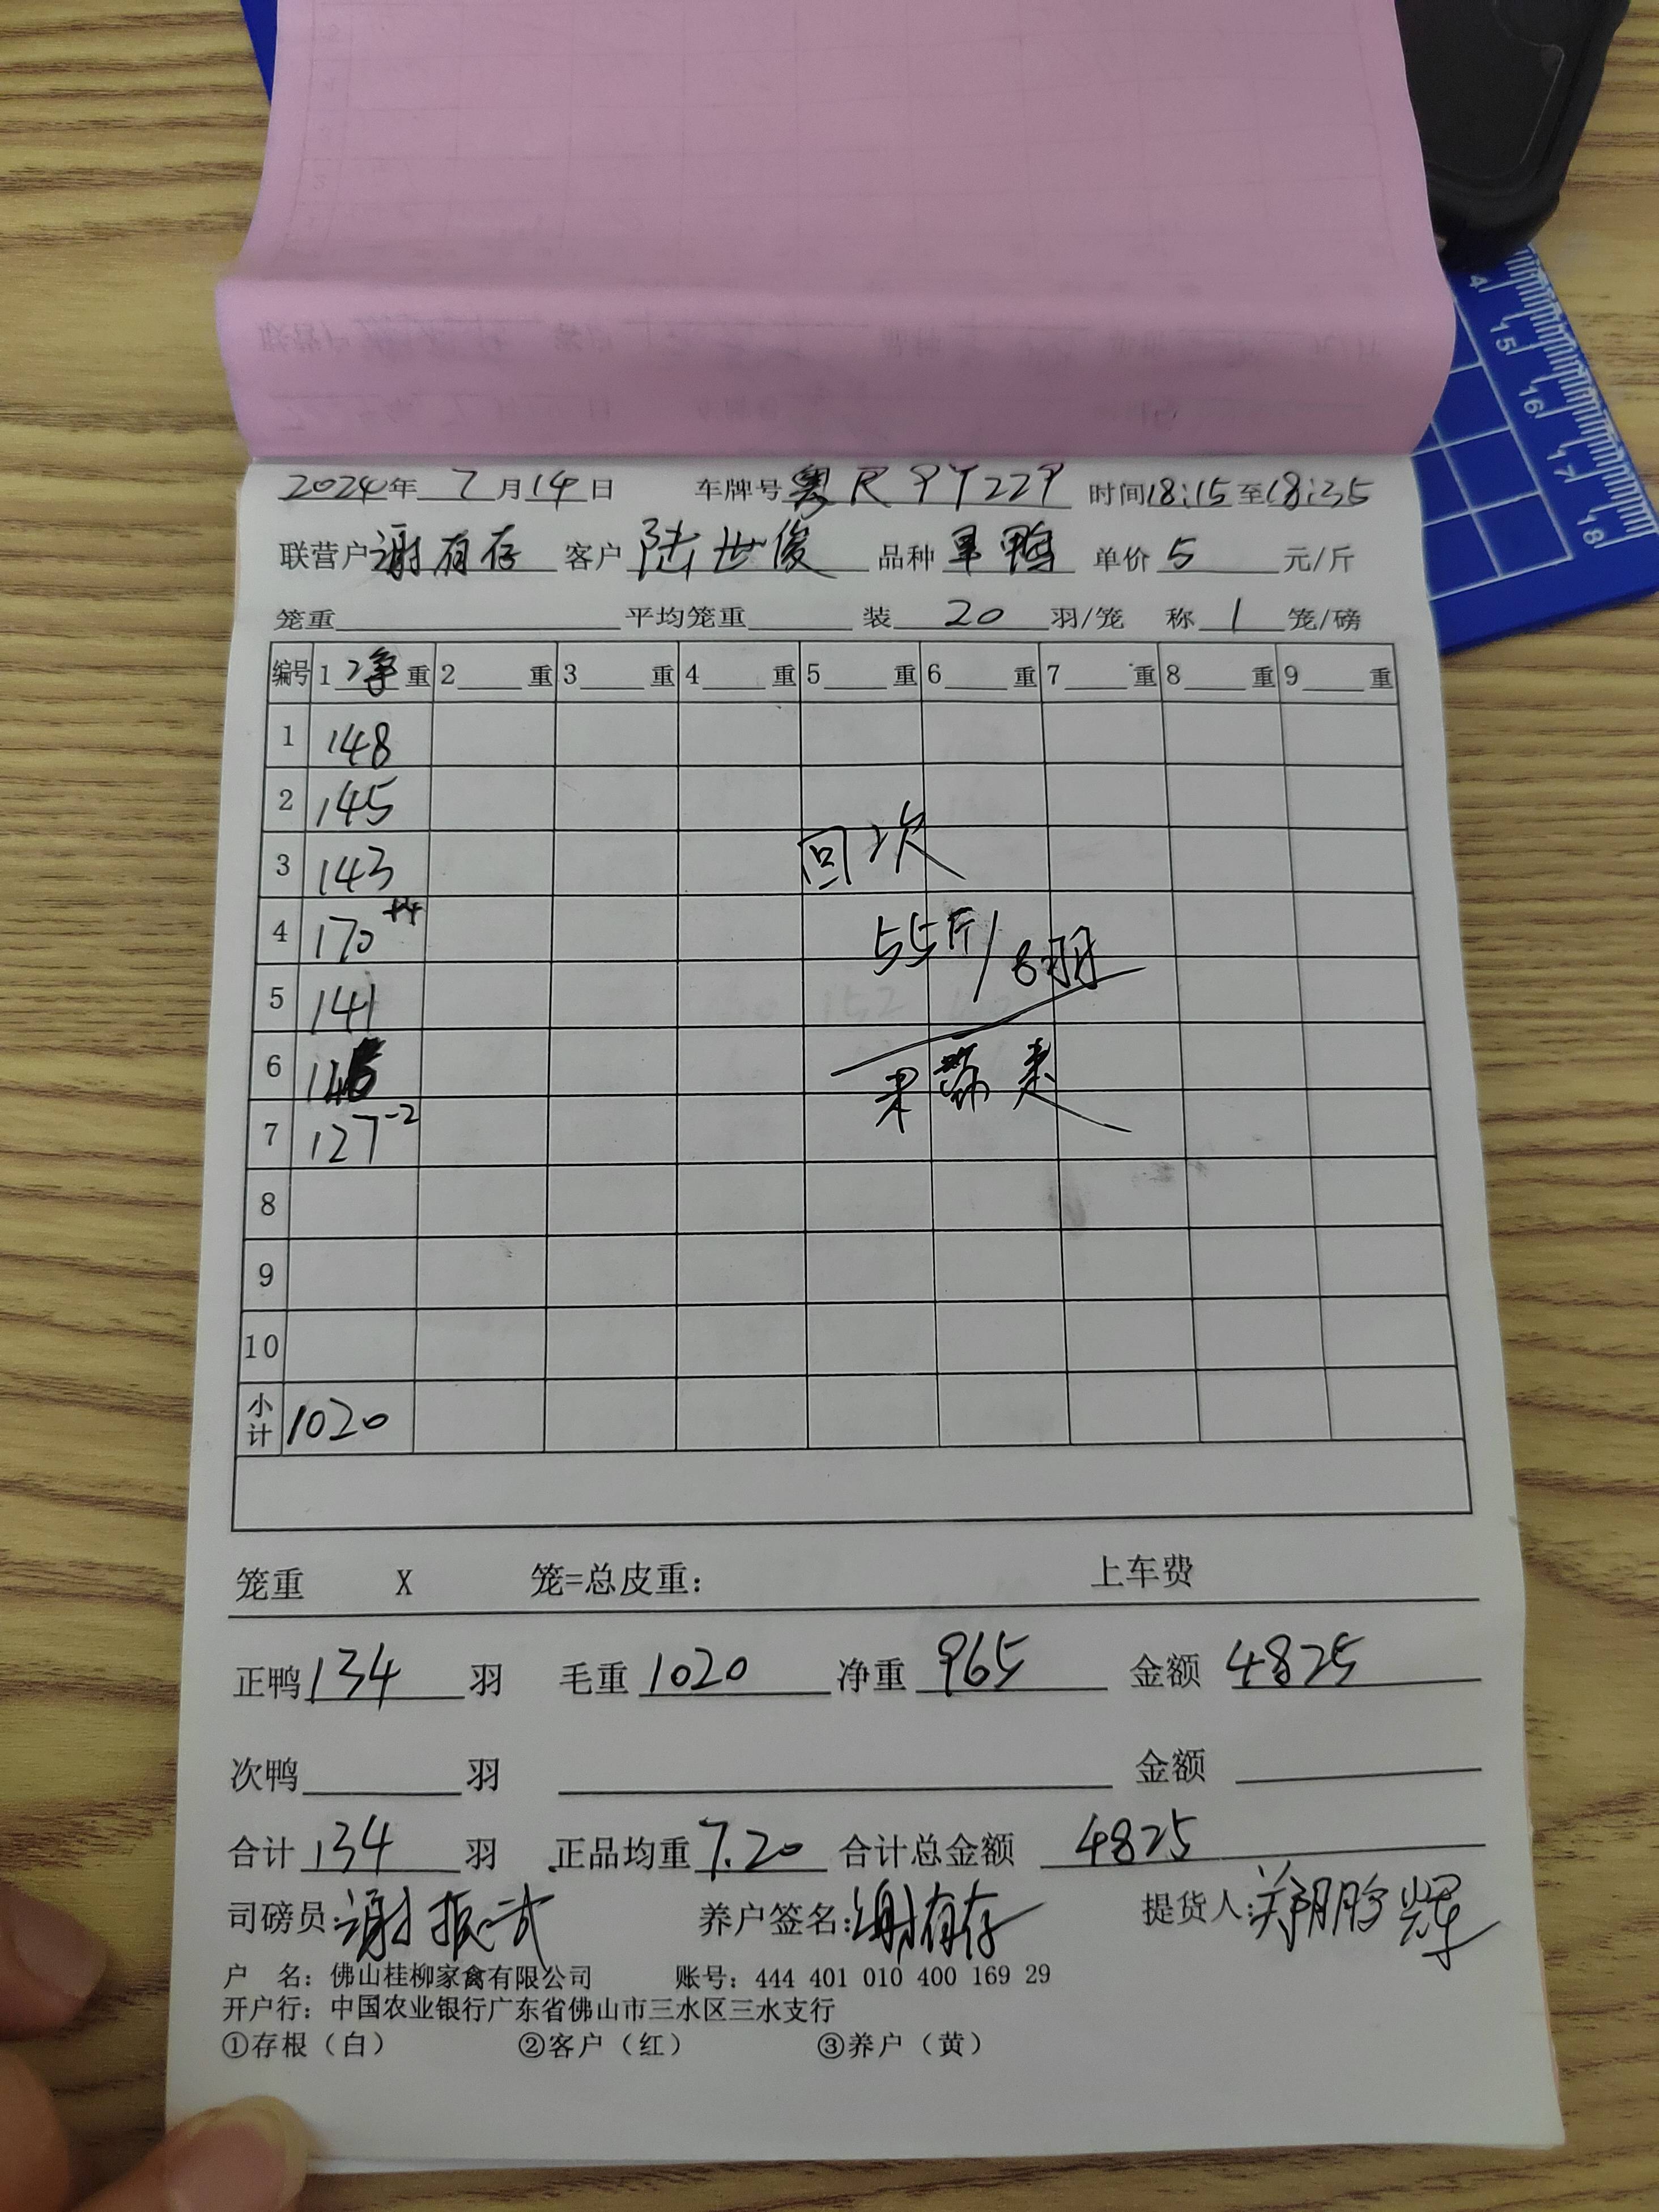 2024年 7月14日 车牌号 粤R9Y229 时间18:15至18:35
联营户 谢有存 客户 陆世俊 品种 旱鸭 单价 5 元/斤
笼重 平均笼重 装 20 羽/笼 称 1 笼/磅
编号 1 净 重 2 重 3 重 4 重 5 重 6 重 7 重 8 重 9 重
1 148
2 145
3 143
4 170 +4
5 141
6 146
7 127 -2
8
9
10
小计 1020
回次
55斤/8羽
笼重 X 笼=总皮重: 上车费
正鸭 134 羽 毛重 1020 净重 965 金额 4825
次鸭 羽 金额
合计 134 羽 正品均重 7.20 合计总金额 4825
司磅员: 谢振武 养户签名: 谢有存 提货人: 郑鹏辉
户 名: 佛山桂柳家禽有限公司 账号: 444 401 010 400 169 29
开户行: 中国农业银行广东省佛山市三水区三水支行
①存根（白） ②客户（红） ③养户（黄）
14 15 16 17 18